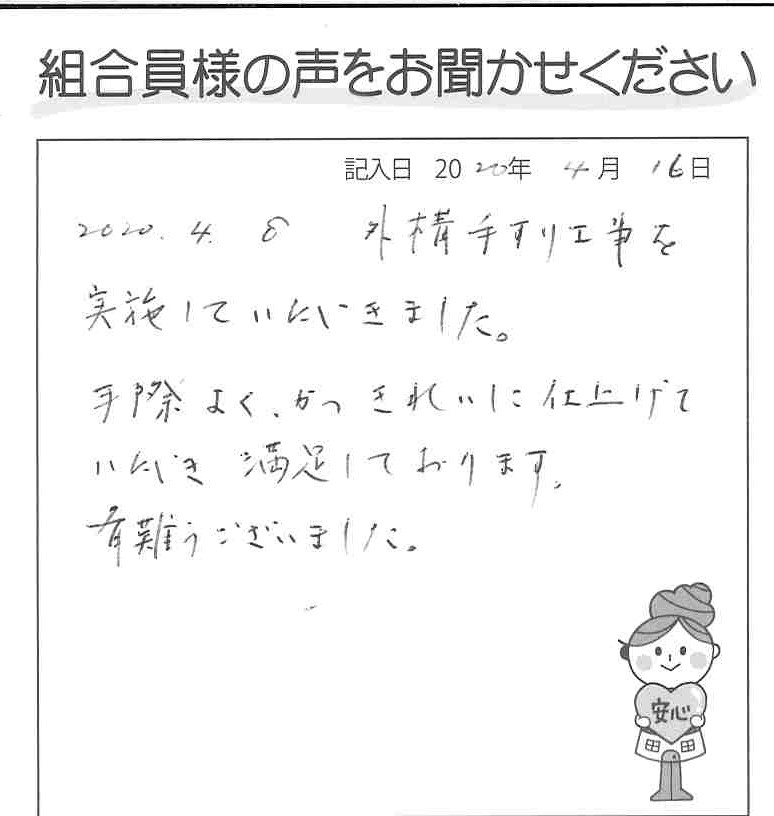 組合員様の声をお聞かせください
記入日 2020年 4月 16日
2020. 4. 8 外構手すり工事を
実施していただきました。
手際よく、かつきれいに仕上げて
いただき 満足しております。
有難うございました。
安心